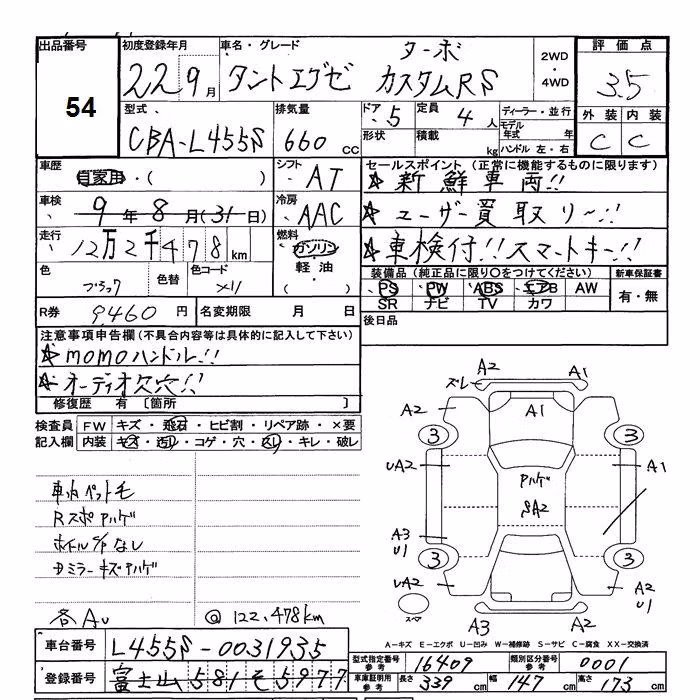 出品番号
54
初度登録年月
22 9月
車名・グレード
ターボ
タントエグゼ カスタムRS
2WD
・
4WD
評価点
3.5
外装 内装
C C
型式
CBA-L455S
排気量
660 cc
ドア 5
形状
定員 4 人
積載 kg
ディーラー・並行
モデル年式 年
ハンドル 左・右
車歴
自家用・( )
シフト
AT
セールスポイント (正常に機能するものに限ります)
☆新鮮車両!!
☆ユーザー買取リ〜!!
☆車検付!!スマートキー!!
車検
9年8月(31日)
冷房
AAC
走行
12万2千478km
燃料
ガソリン
軽油
・
色
ブラック
色替
色コード
X11
装備品 (純正品に限り○をつけてください)
PS PW ABS エアB AW
SR ナビ TV カワ
新車保証書
有・無
R券 9,460 円
名変期限 月 日
後日品
注意事項申告欄(不具合内容等は具体的に記入して下さい)
☆momoハンドル!!
☆オーディオ欠穴!!
修復歴 有 〔箇所 〕
検査員記入欄
FW キズ・飛石・ヒビ割・リペア跡・×要
内装 キズ・汚れ・コゲ・穴・スレ・キレ・破レ
車内ペット毛
Rスポ ハゲ
ホイルS/P なし
Dミラーキズハゲ
各AU
@122,478km
ズレ A2 A1
A2 A1 A2
3 3
UA2 ハゲ A1
SA2
A3
U1
3 3
UA2 A2
U1
スペア A3 A2
A-キズ E-エクボ U-凹み W-補修跡 S-サビ C-腐食 XX-交換済
車台番号 L455S-0031935
登録番号 富士山 581 そ 5977
型式指定番号 参考 16409
類別区分番号 参考 0001
車庫証明用 参考 長さ 339cm 幅 147cm 高さ 173cm